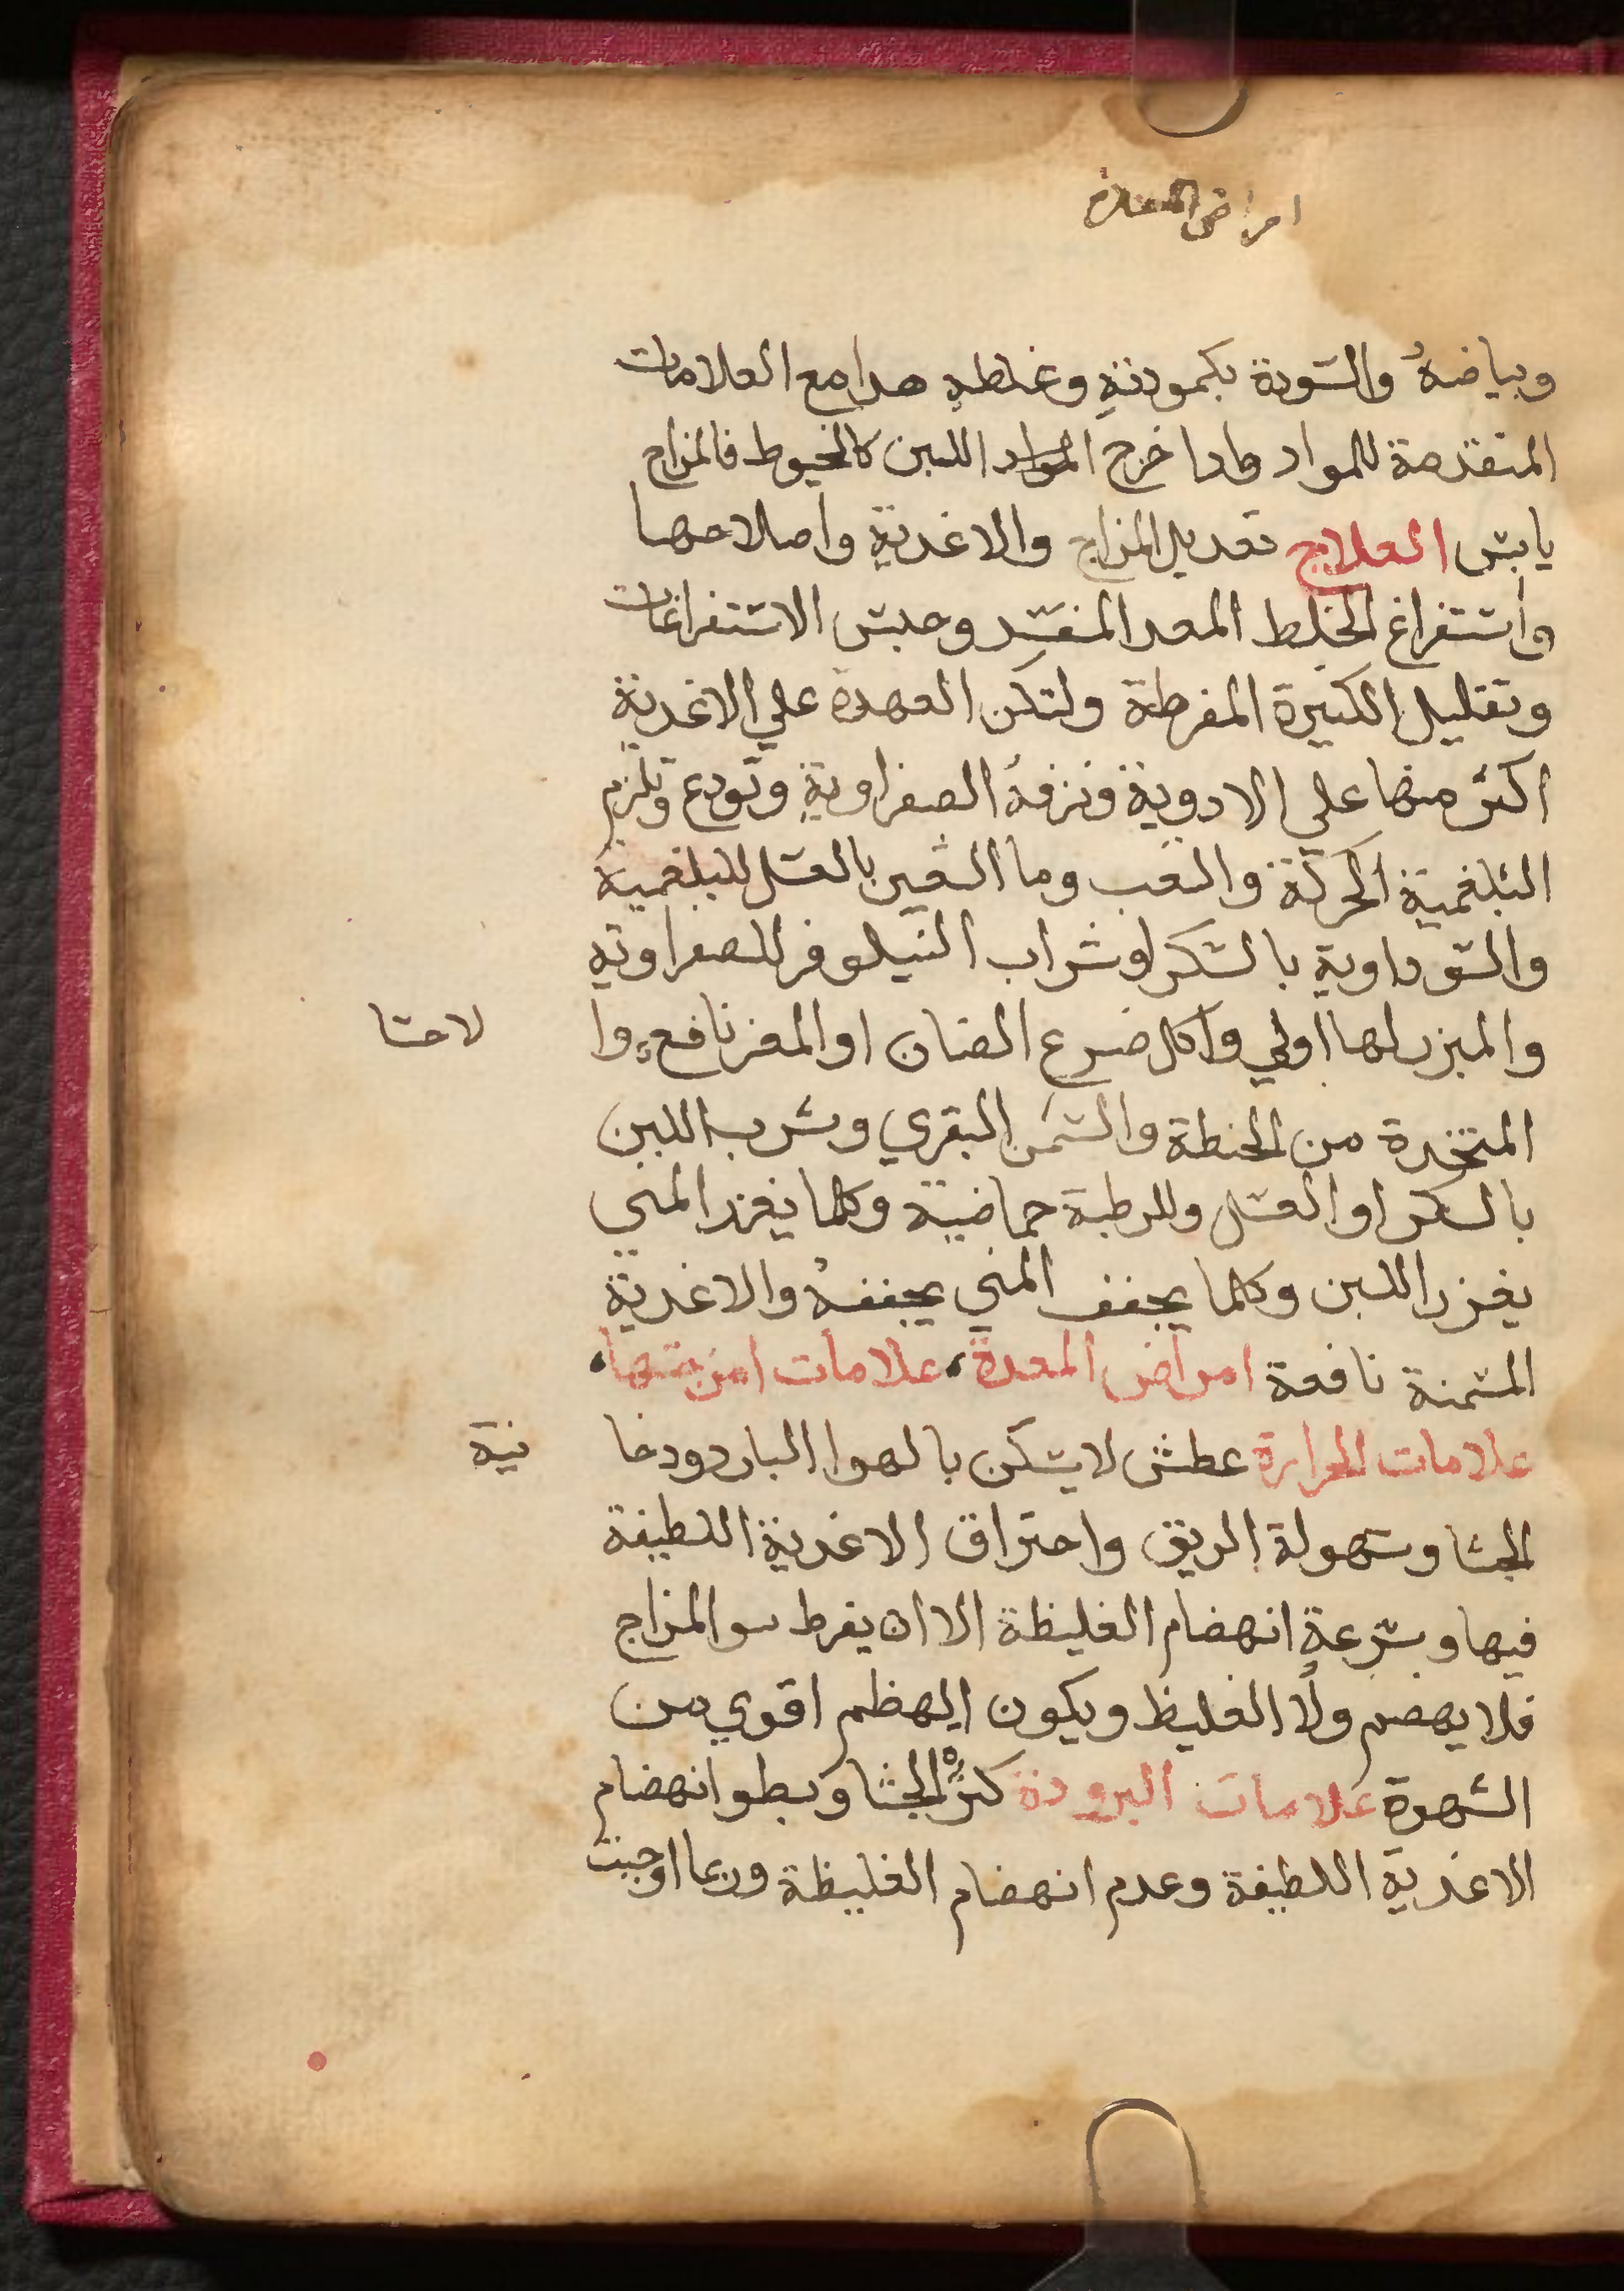 امراض المعدة
وبياضهُ والسودة بكمودتهِ وغلظهِ هدا مع العلامات
المتقدمة للمواد وادا خرج المواد اللبن كالخيوط فالمزاج
يابس العلاج تعديل المزاج والاغدية واصلاحها
واستفراغ الخلط المعد المفسد وحبس الاستفراغات
وتقليل الكبيرة المفرطة ولتكن العهدة علي الاغدية
اكثر منها علي الادوية فنزفهُ الصفراوية وتودع وتلزم
البلغمية الحركة والتعب وما الشعير بالعسل للبلغمية
والسوداوية بالسكر او شراب النيلوفر للصفراوية
والمبزر لها اولي واكل ضرع الضان او المعز نافع وا لاحسا
المتخدة من الحنطة والسمن البقري وشرب اللبن
بالسكر او العسل وللرطبة حماضية وكلما يغزر المني
يغزر اللبن وكلما يجفف المني يجففهُ والاغدية
المسمنة نافعة امراض المعدة، علامات امزجتها،
علامات الحرارة عطش لا يسكن بالهوا البارد ودخا نية
الجشا وسهولة الريق واحتراق الاغدية اللطيفة
فيها وسرعة انهضام الغليظة الا ان يفرط سو المزاج
فلا يهضم ولا الغليظ ويكون الهظم اقوي من
الشهوة علامات البرودة كثرة الجشا وبطو انهضام
الاغدية اللطيفة وعدم انهضام الغليظة وربما اوجبت